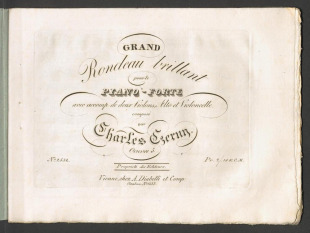 GRAND
Rondeau brillant
pour le
PIANO-FORTE
avec accomp: de deux Violons, Alto et Violoncelle
composé
par
Charles Czerny
Oeuvre
Propriété des Editeurs
Vienne, chez A. Diabelli et Comp.